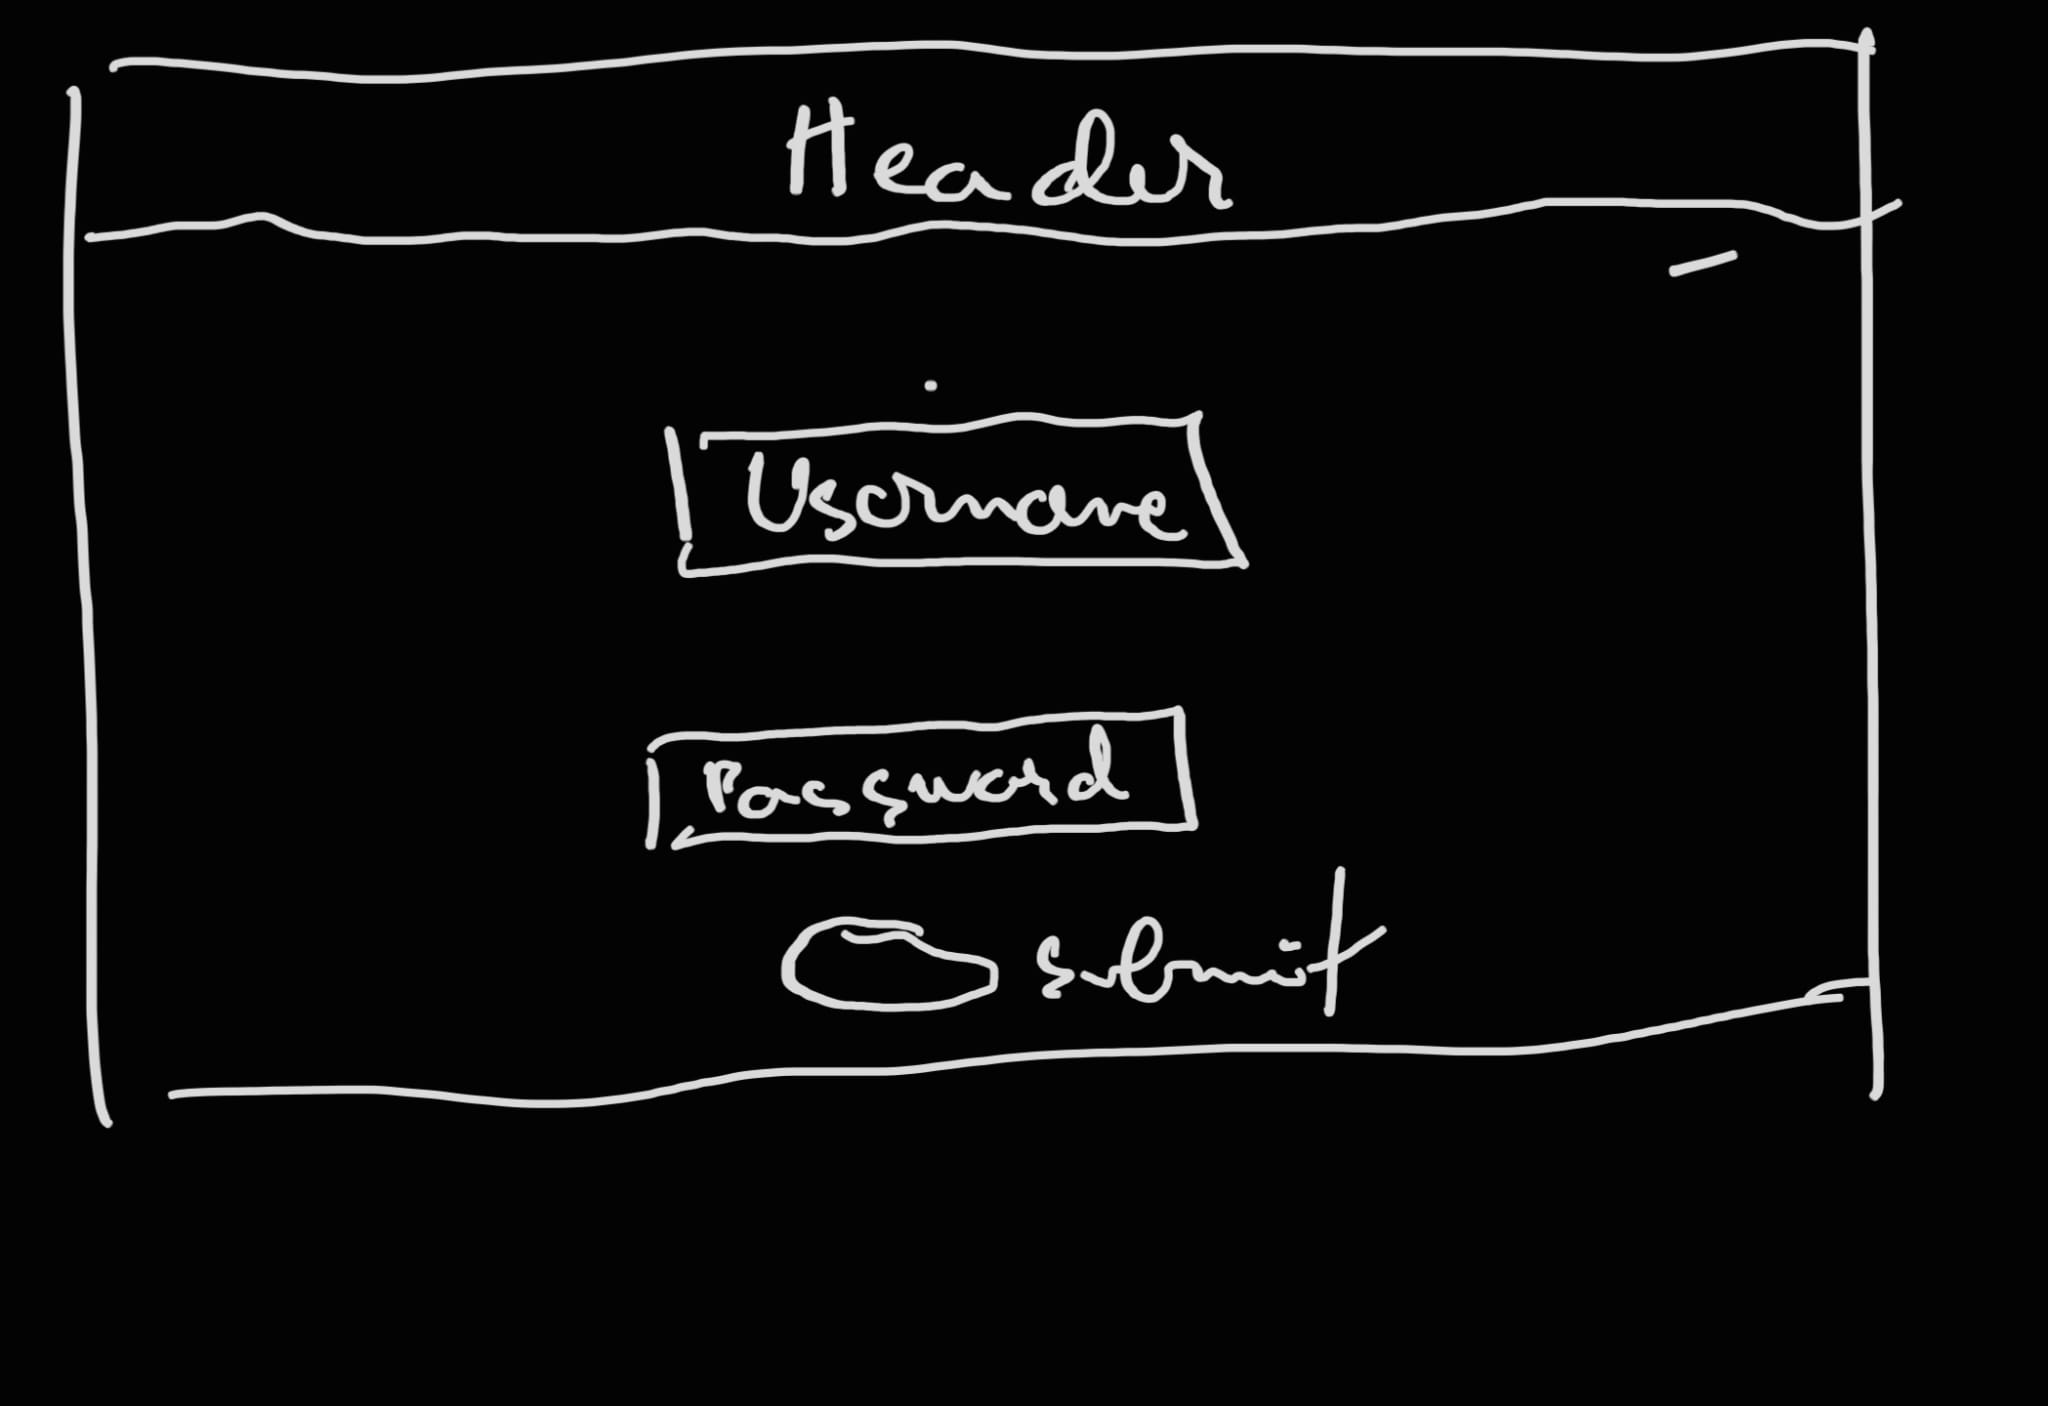 Header
Username
Password
submit